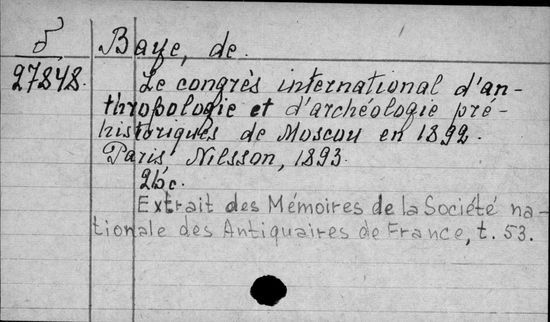 δ Baye, de.
27848. Le congrès international d'an-
thropologie et d'archéologie pré-
historiques de Moscou en 1892.
Paris Nilsson, 1893.
26 c.
Extrait des Mémoires de la Société na-
tionale des Antiquaires de France, t. 53.